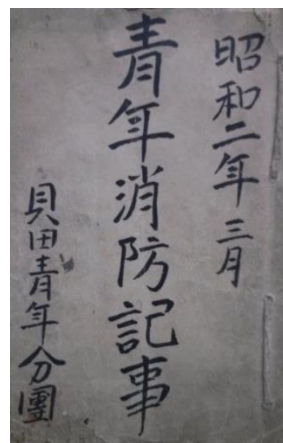 昭和二年三月
青年消防記事
貝田青年分團